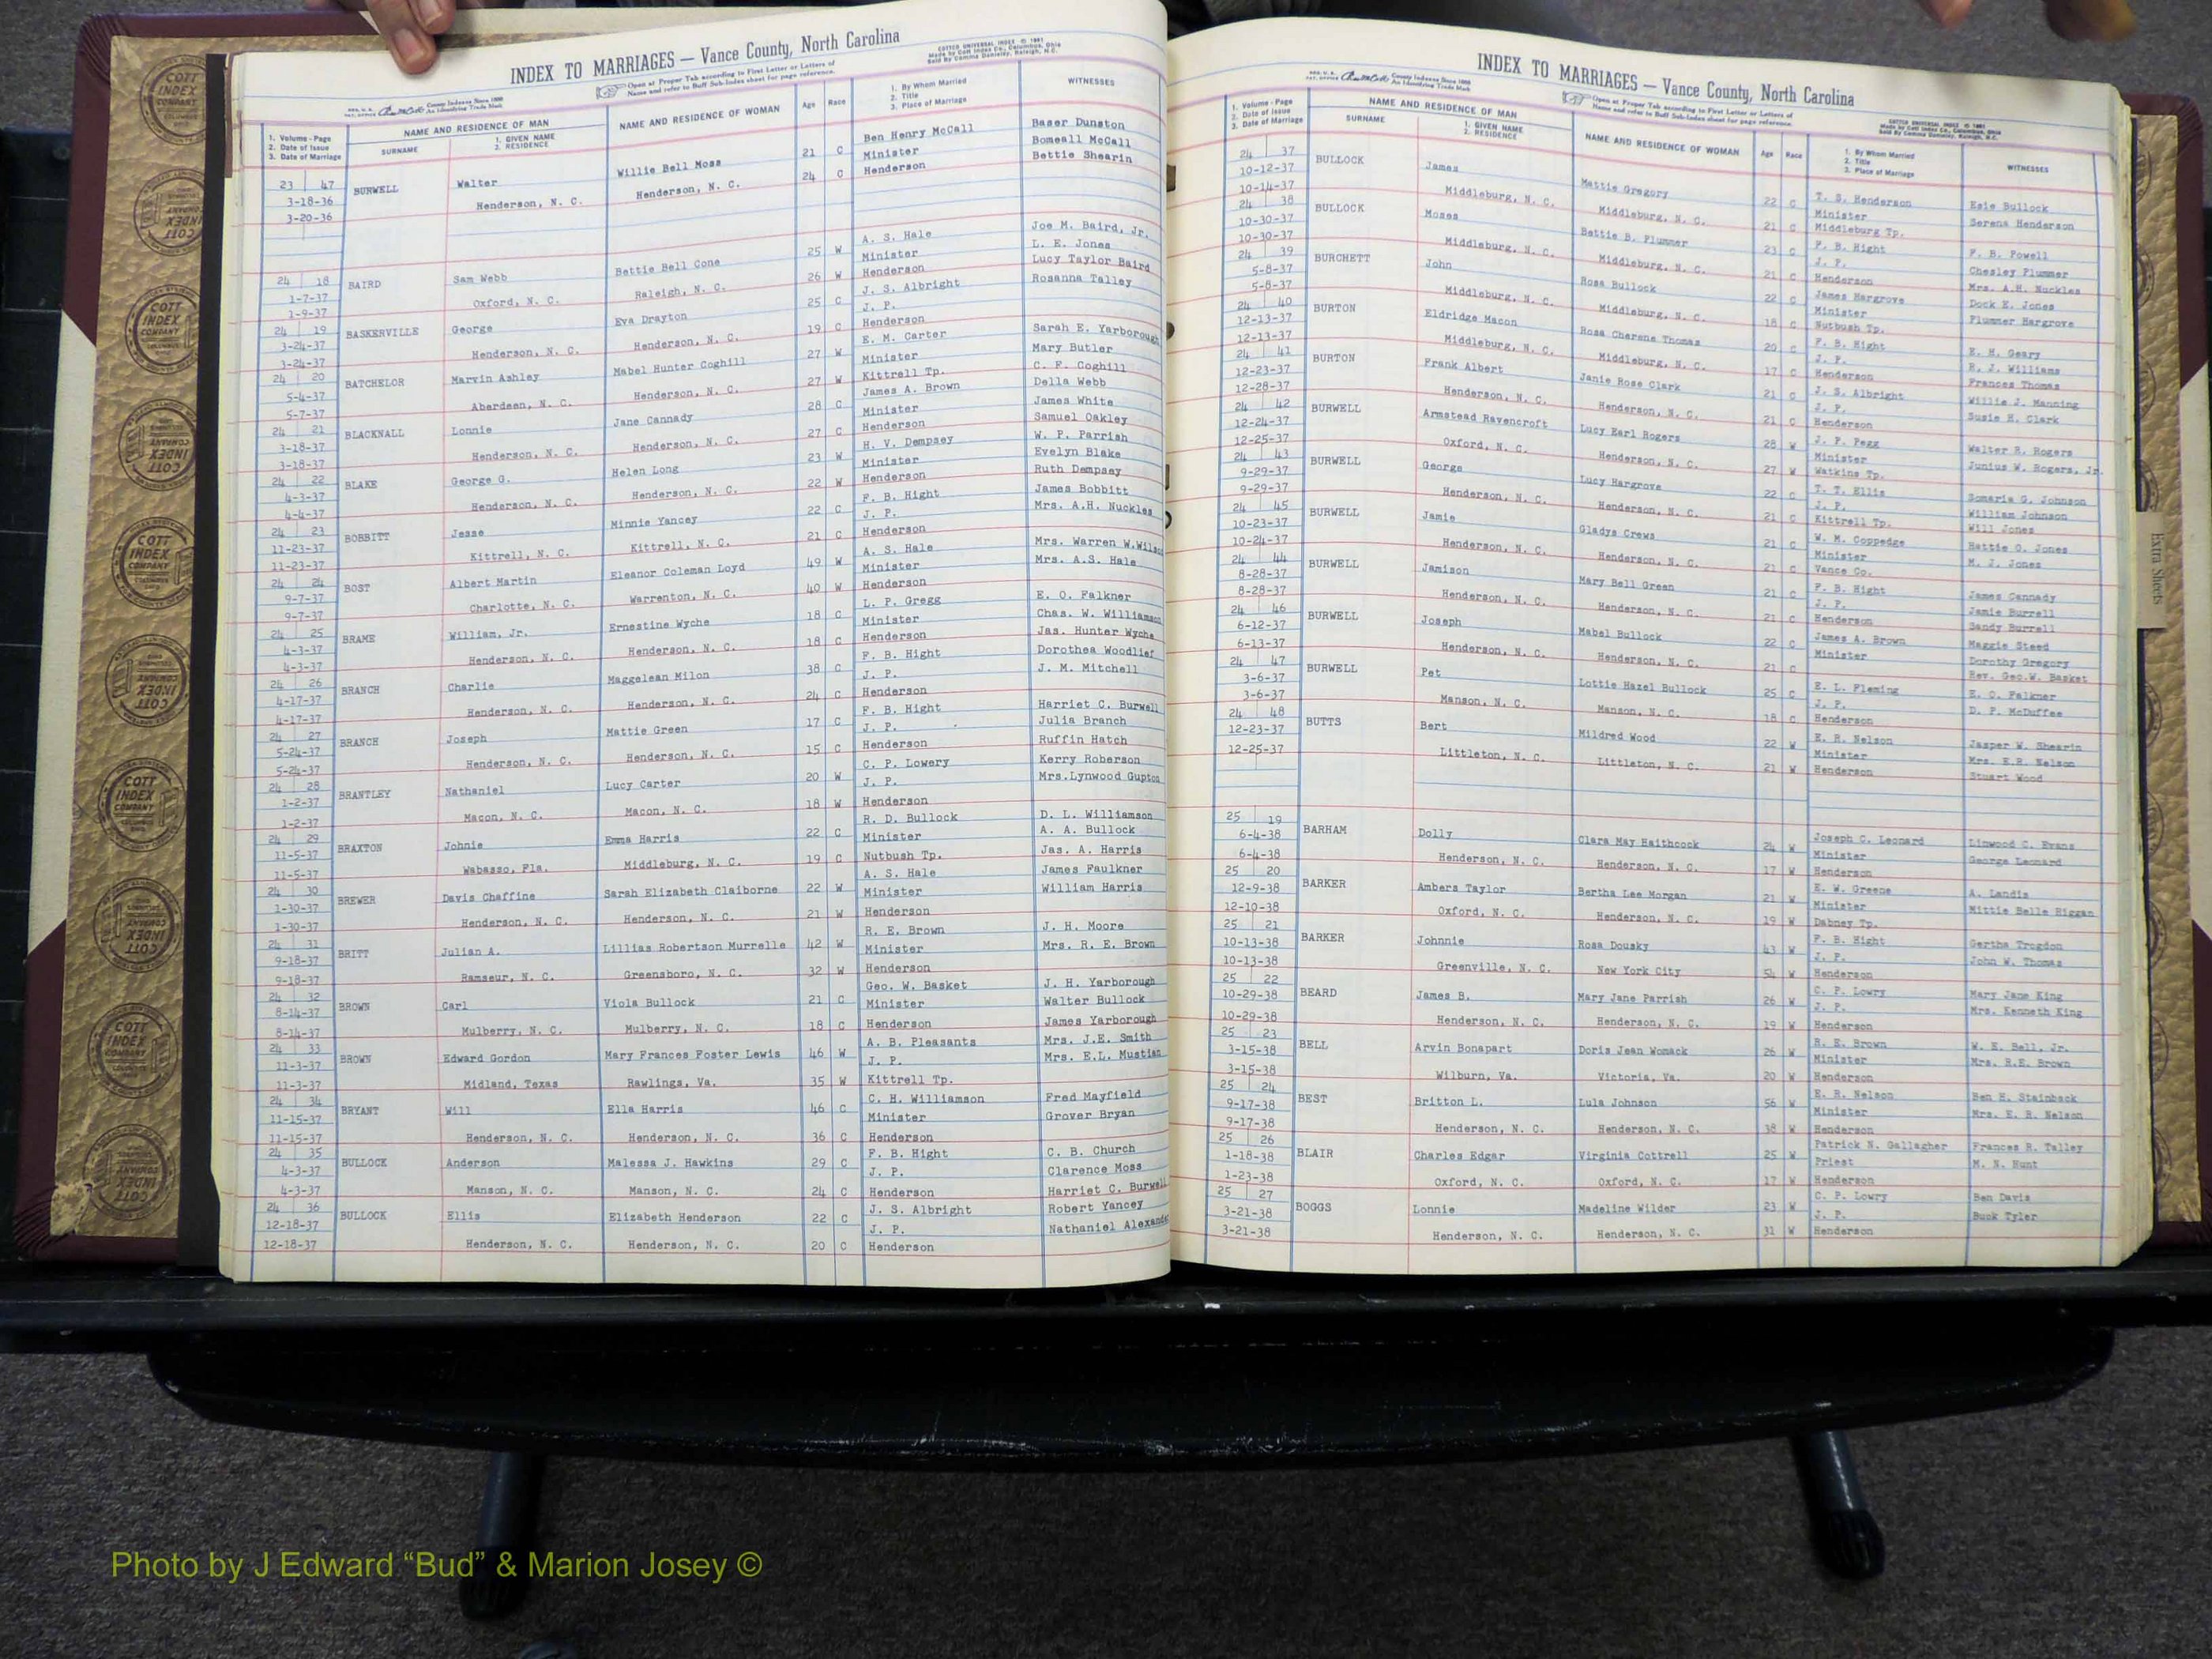 INDEX TO MARRIAGES — Vance County, North Carolina
Open at Proper Tab according to First Letter or Letters of
Name and refer to Buff Sub-Index sheet for page reference.
1. Volume - Page 2. Date of Issue 3. Date of Marriage
NAME AND RESIDENCE OF MAN
SURNAME 1. GIVEN NAME 2. RESIDENCE
NAME AND RESIDENCE OF WOMAN
Age Race
1. By Whom Married 2. Title 3. Place of Marriage
WITNESSES
23 47 BURWELL Walter Willie Bell Moss 21 C Ben Henry McCall Baser Dunston
3-18-36 Henderson, N. C. Henderson, N. C. 24 C Minister Bomeall McCall
3-20-36 Henderson Bettie Shearin
24 18 BAIRD Sam Webb Bettie Bell Cone 25 W A. S. Hale Joe M. Baird, Jr.
1-7-37 Oxford, N. C. Raleigh, N. C. 26 W Minister L. E. Jones
1-9-37 Henderson Lucy Taylor Baird
24 19 BASKERVILLE George Eva Drayton 25 C J. S. Albright Rosanna Talley
3-24-37 Henderson, N. C. Henderson, N. C. 19 C J. P.
3-24-37 Henderson
24 20 BATCHELOR Marvin Ashley Mabel Hunter Coghill 27 W E. M. Carter Sarah E. Yarborough
5-4-37 Aberdeen, N. C. Henderson, N. C. 27 W Minister Mary Butler
5-7-37 Kittrell Tp. C. F. Coghill
24 21 BLACKNALL Lonnie Jane Cannady 28 C James A. Brown Della Webb
3-18-37 Henderson, N. C. Henderson, N. C. 27 C Minister James White
3-18-37 Henderson Samuel Oakley
24 22 BLAKE George G. Helen Long 23 W H. V. Dempsey W. P. Parrish
4-3-37 Henderson, N. C. Henderson, N. C. 22 W Minister Evelyn Blake
4-4-37 Henderson Ruth Dempsey
24 23 BOBBITT Jesse Minnie Yancey 22 C F. B. Hight James Bobbitt
11-23-37 Kittrell, N. C. Kittrell, N. C. 21 C J. P. Mrs. A.H. Nuckles
11-23-37 Henderson
24 24 BOST Albert Martin Eleanor Coleman Loyd 49 W A. S. Hale Mrs. Warren W.Wilson
9-7-37 Charlotte, N. C. Warrenton, N. C. 40 W Minister Mrs. A.S. Hale
9-7-37 Henderson
24 25 BRAME William, Jr. Ernestine Wyche 18 C L. P. Gregg E. O. Falkner
4-3-37 Henderson, N. C. Henderson, N. C. 18 C Minister Chas. W. Williamson
4-3-37 Henderson Jas. Hunter Wyche
24 26 BRANCH Charlie Maggelean Milon 38 C F. B. Hight Dorothea Woodlief
4-17-37 Henderson, N. C. Henderson, N. C. 24 C J. P. J. M. Mitchell
4-17-37 Henderson
24 27 BRANCH Joseph Mattie Green 17 C F. B. Hight Harriet C. Burwell
5-24-37 Henderson, N. C. Henderson, N. C. 15 C J. P. Julia Branch
5-24-37 Henderson Ruffin Hatch
24 28 BRANTLEY Nathaniel Lucy Carter 20 W C. P. Lowery Kerry Roberson
1-2-37 Macon, N. C. Macon, N. C. 18 W J. P. Mrs.Lynwood Gupton
1-2-37 Henderson
24 29 BRAXTON Johnie Emma Harris 22 C R. D. Bullock D. L. Williamson
11-5-37 Wabasso, Fla. Middleburg, N. C. 19 C Minister A. A. Bullock
11-5-37 Nutbush Tp. Jas. A. Harris
24 30 BREWER Davis Chaffine Sarah Elizabeth Claiborne 22 W A. S. Hale James Faulkner
1-30-37 Henderson, N. C. Henderson, N. C. 21 W Minister William Harris
1-30-37 Henderson
24 31 BRITT Julian A. Lillias Robertson Murrelle 42 W R. E. Brown J. H. Moore
9-18-37 Ramseur, N. C. Greensboro, N. C. 32 W Minister Mrs. R. E. Brown
9-18-37 Henderson
24 32 BROWN Carl Viola Bullock 21 C Geo. W. Basket J. H. Yarborough
8-14-37 Mulberry, N. C. Mulberry, N. C. 18 C Minister Walter Bullock
8-14-37 Henderson James Yarborough
24 33 BROWN Edward Gordon Mary Frances Foster Lewis 46 W A. B. Pleasants Mrs. J.E. Smith
11-3-37 Midland, Texas Rawlings, Va. 35 W J. P. Mrs. E.L. Mustian
11-3-37 Kittrell Tp.
24 34 BRYANT Will Ella Harris 46 C C. H. Williamson Fred Mayfield
11-15-37 Henderson, N. C. Henderson, N. C. 36 C Minister Grover Bryan
11-15-37 Henderson
24 35 BULLOCK Anderson Malessa J. Hawkins 29 C F. B. Hight C. B. Church
4-3-37 Manson, N. C. Manson, N. C. 24 C J. P. Clarence Moss
4-3-37 Henderson Harriet C. Burwell
24 36 BULLOCK Ellis Elizabeth Henderson 22 C J. S. Albright Robert Yancey
12-18-37 Henderson, N. C. Henderson, N. C. 20 C J. P. Nathaniel Alexander
12-18-37 Henderson
INDEX TO MARRIAGES — Vance County, North Carolina
Open at Proper Tab according to First Letter or Letters of
Name and refer to Buff Sub-Index sheet for page reference.
1. Volume - Page 2. Date of Issue 3. Date of Marriage
NAME AND RESIDENCE OF MAN
SURNAME 1. GIVEN NAME 2. RESIDENCE
NAME AND RESIDENCE OF WOMAN
Age Race
1. By Whom Married 2. Title 3. Place of Marriage
WITNESSES
24 37 BULLOCK James Mattie Gregory 22 C T. S. Henderson Esie Bullock
10-12-37 Middleburg, N. C. Middleburg, N. C. 21 C Minister Serena Henderson
10-14-37 Middleburg Tp.
24 38 BULLOCK Moses Bettie B. Plummer 23 C F. B. Hight F. B. Powell
10-30-37 Middleburg, N. C. Middleburg, N. C. 21 C J. P. Chesley Plummer
10-30-37 Henderson Mrs. A.H. Nuckles
24 39 BURCHETT John Rosa Bullock 22 C James Hargrove Dock E. Jones
5-8-37 Middleburg, N. C. Middleburg, N. C. 18 C Minister Plummer Hargrove
5-8-37 Nutbush Tp.
24 40 BURTON Eldridge Macon Rosa Cherene Thomas 20 C F. B. Hight E. H. Geary
12-13-37 Middleburg, N. C. Middleburg, N. C. 17 C J. P. R. J. Williams
12-13-37 Henderson Frances Thomas
24 41 BURTON Frank Albert Janie Rose Clark 21 C J. S. Albright Willie J. Manning
12-23-37 Henderson, N. C. Henderson, N. C. 21 C J. P. Susie H. Clark
12-28-37 Henderson
24 42 BURWELL Armstead Ravencroft Lucy Earl Rogers 28 W J. F. Pegg Walter R. Rogers
12-24-37 Oxford, N. C. Henderson, N. C. 27 W Minister Junius W. Rogers, Jr.
12-25-37 Watkins Tp.
24 43 BURWELL George Lucy Hargrove 22 C T. T. Ellis Somaria G. Johnson
9-29-37 Henderson, N. C. Henderson, N. C. 21 C J. P. William Johnson
9-29-37 Kittrell Tp. Will Jones
24 45 BURWELL Jamie Gladys Crews 21 C W. M. Coppedge Hattie O. Jones
10-23-37 Henderson, N. C. Henderson, N. C. 21 C Minister M. J. Jones
10-24-37 Vance Co.
24 44 BURWELL Jamison Mary Bell Green 21 C F. B. Hight James Cannady
8-28-37 Henderson, N. C. Henderson, N. C. 21 C J. P. Jamie Burrell
8-28-37 Henderson Sandy Burrell
24 46 BURWELL Joseph Mabel Bullock 22 C James A. Brown Maggie Steed
6-12-37 Henderson, N. C. Henderson, N. C. 21 C Minister Dorothy Gregory
6-13-37 Rev. Geo.W. Basket
24 47 BURWELL Pet Lottie Hazel Bullock 25 C E. L. Fleming E. O. Falkner
3-6-37 Manson, N. C. Manson, N. C. 18 C J. P. D. P. McDuffee
3-6-37 Henderson
24 48 BUTTS Bert Mildred Wood 22 W E. R. Nelson Jasper W. Shearin
12-23-37 Littleton, N. C. Littleton, N. C. 21 W Minister Mrs. E.R. Nelson
12-25-37 Henderson Stuart Wood
25 19 BARHAM Dolly Clara May Haithcock 24 W Joseph C. Leonard Linwood C. Evans
6-4-38 Henderson, N. C. Henderson, N. C. 17 W Minister George Leonard
6-4-38 Henderson
25 20 BARKER Ambers Taylor Bertha Lee Morgan 21 W E. W. Greene A. Landis
12-9-38 Oxford, N. C. Henderson, N. C. 19 W Minister Mittie Belle Higgan
12-10-38 Dabney Tp.
25 21 BARKER Johnnie Rosa Dousky 43 W F. B. Hight Gertha Trogdon
10-13-38 Greenville, N. C. New York City 54 W J. P. John W. Thomas
10-13-38 Henderson
25 22 BEARD James B. Mary Jane Parrish 26 W C. P. Lowry Mary Jane King
10-29-38 Henderson, N. C. Henderson, N. C. 19 W J. P. Mrs. Kenneth King
10-29-38 Henderson
25 23 BELL Arvin Bonapart Doris Jean Womack 26 W R. E. Brown W. E. Bell, Jr.
3-15-38 Wilburn, Va. Victoria, Va. 20 W Minister Mrs. R.E. Brown
3-15-38 Henderson
25 24 BEST Britton L. Lula Johnson 56 W E. R. Nelson Ben H. Stainback
9-17-38 Henderson, N. C. Henderson, N. C. 38 W Minister Mrs. E. R. Nelson
9-17-38 Henderson
25 26 BLAIR Charles Edgar Virginia Cottrell 25 W Patrick N. Gallagher Frances R. Talley
1-18-38 Oxford, N. C. Oxford, N. C. 17 W Priest M. N. Hunt
1-23-38 Henderson
25 27 BOGGS Lonnie Madeline Wilder 23 W C. P. Lowry Ben Davis
3-21-38 Henderson, N. C. Henderson, N. C. 31 W J. P. Buck Tyler
3-21-38 Henderson
Extra Sheets
COTT INDEX COMPANY
Photo by J Edward “Bud” & Marion Josey ©